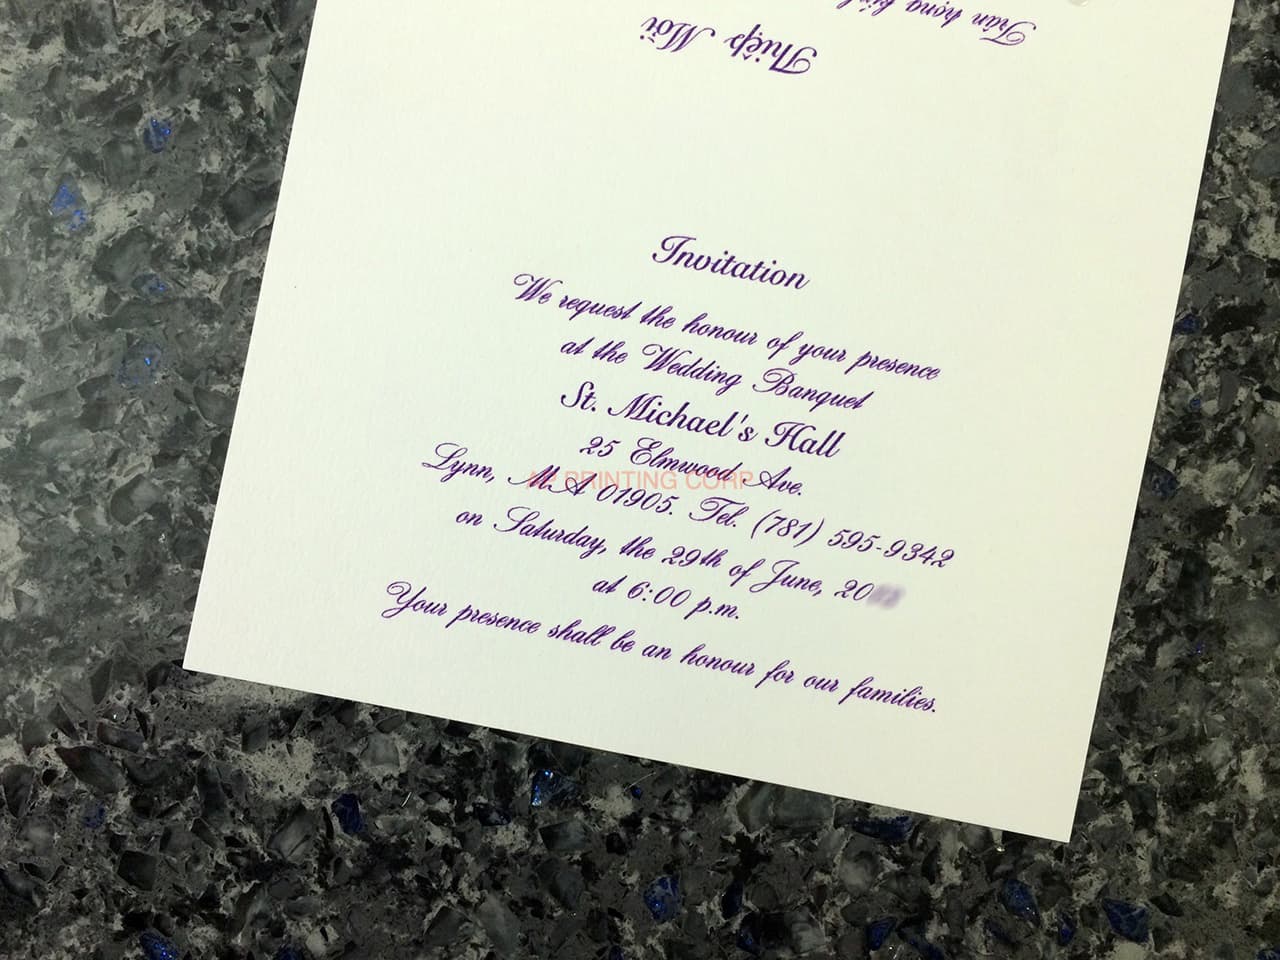 Thiệp Mời
Trân trọng kính
Invitation
We request the honour of your presence
at the Wedding Banquet
St. Michael's Hall
25 Elmwood Ave.
AP PRINTING CORP
Lynn, MA 01905. Tel. (781) 595-9342
on Saturday, the 29th of June, 20
at 6:00 p.m.
Your presence shall be an honour for our families.